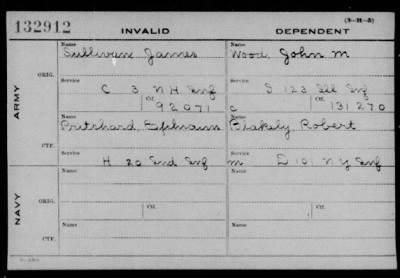 (3-M-5)
132912 INVALID DEPENDENT
Name Name
Sullivan James Wood, John M
ORIG.
Service Service
C 3 N H Inf S 123 Ill Inf
Ctf. Ctf.
92071 C 131270
ARMY
Name Name
Pritchard, Ephraim Blakely, Robert
CTF.
Service Service
H 20 Ind Inf m D 101 N Y Inf
Name Name
NAVY
ORIG.
Ctf. Ctf.
Name Name
CTF.